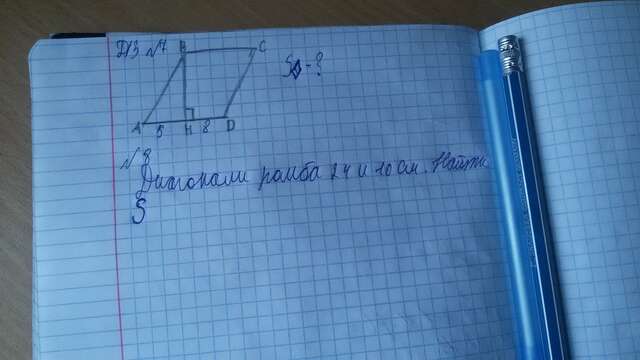 ДЗ №7
B C
S◊-?
A 5 H 8 D
№8
Диагонали ромба 24 и 10 см. Найти
S